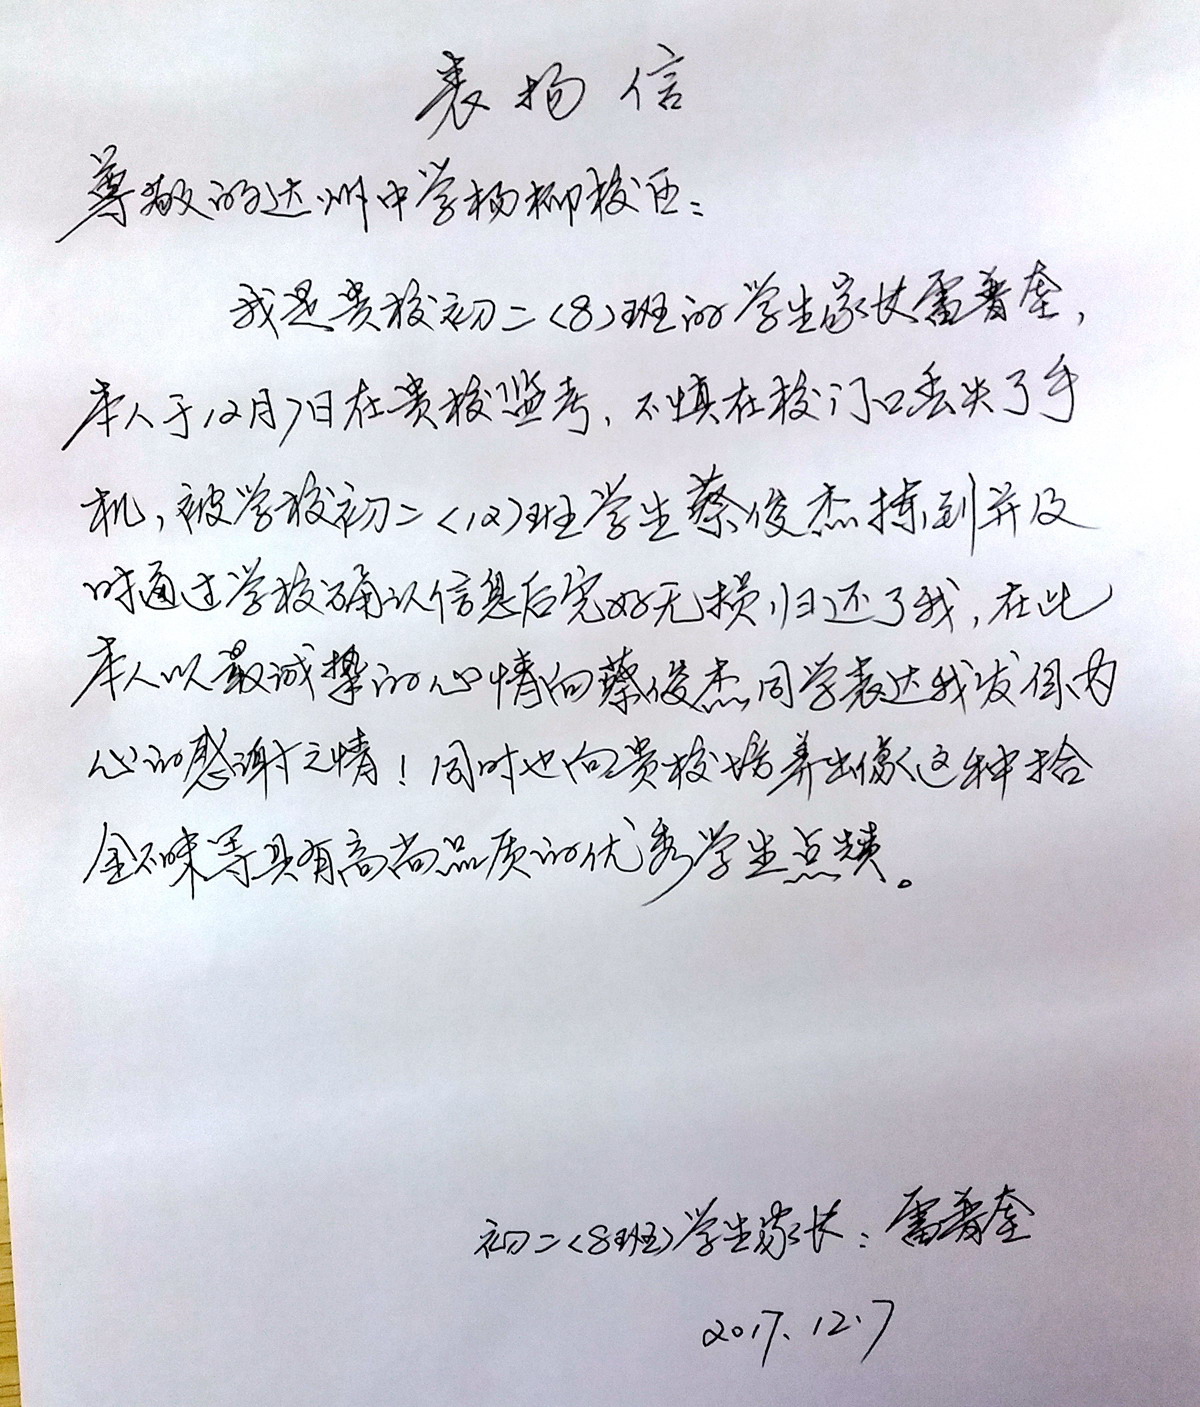 表扬信
尊敬的达州中学杨柳校区：
我是贵校初二〈8〉班的学生家长雷普奎，
本人于12月7日在贵校监考，不慎在校门口丢失了手
机，被学校初二〈12〉班学生蔡俊杰捡到并及
时通过学校确认信息后完好无损归还了我，在此
本人以最诚挚的心情向蔡俊杰同学表达我发自内
心的感谢之情！同时也向贵校培养出像这种拾
金不昧等具有高尚品质的优秀学生点赞。
初二〈8班〉学生家长：雷普奎
2017.12.7